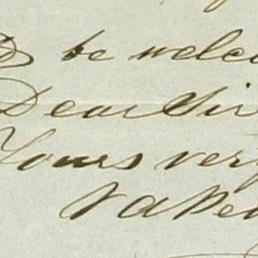 be welco
Dear Sir
Yours very